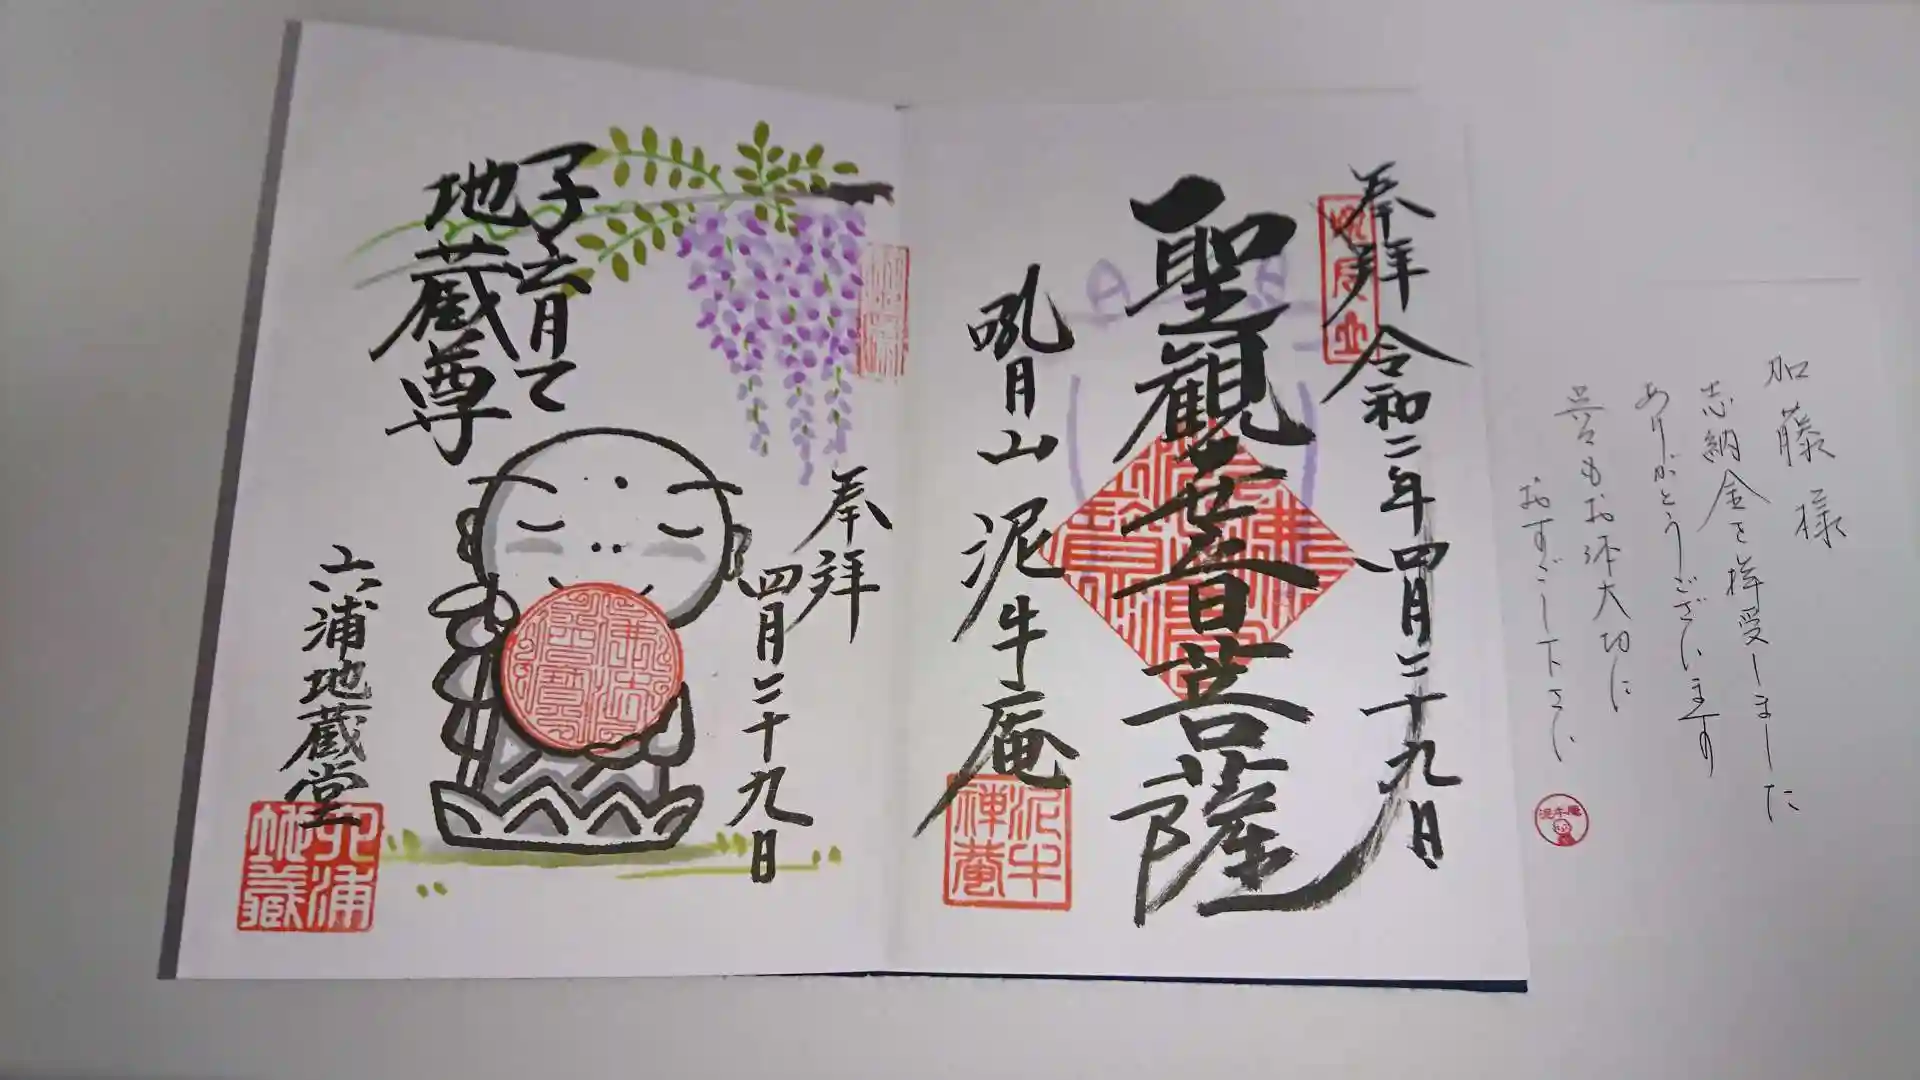 加藤様
志納金を拝受しました
ありがとうございます
呉々もお体大切に
おすごし下さい
泥牛庵
奉拝 令和二年四月二十九日
聖観世音菩薩
吼月山 泥牛庵
吼月山
泥牛
禅菴
奉拝
四月二十九日
子育て
地蔵尊
六浦地蔵堂
六浦
地蔵